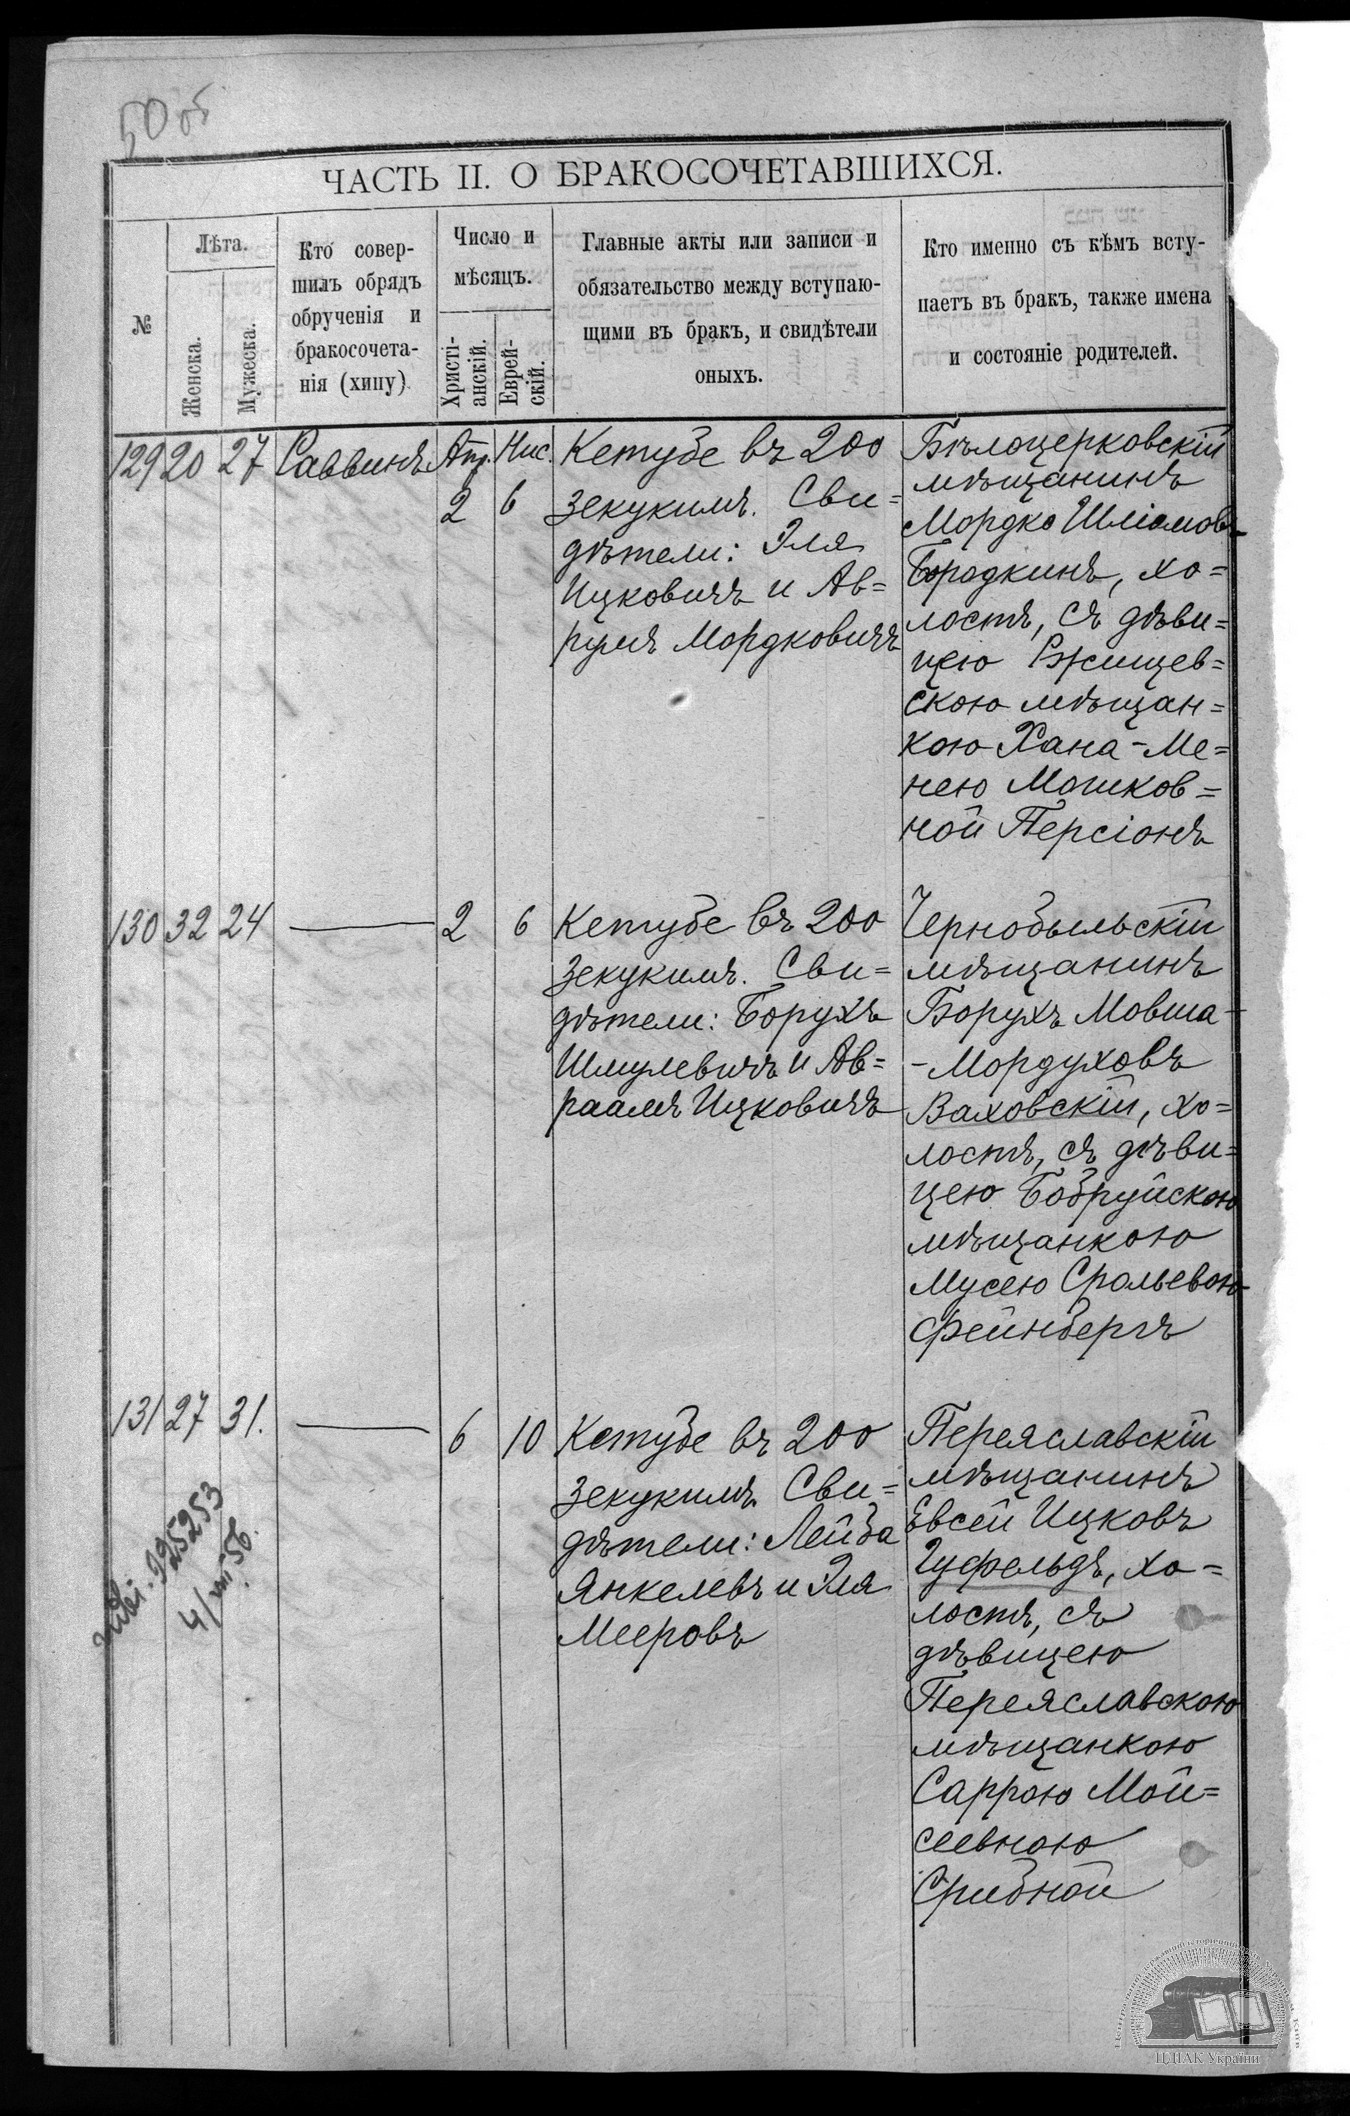 50 об
ЧАСТЬ II. О БРАКОСОЧЕТАВШИХСЯ.
№
Лѣта.
Женска.
Мужеска.
Кто совер-
шилъ обрядъ
обрученія и
бракосочета-
нія (хипу)
Число и
мѣсяцъ.
Христі-
анскій.
Еврей-
скій.
Главные акты или записи и
обязательство между вступаю-
щими въ бракъ, и свидѣтели
оныхъ.
Кто именно съ кѣмъ всту-
паетъ въ бракъ, также имена
и состояніе родителей.
129 20 27 Саввинъ Апр. 2 Нис. 6
Кетубе въ 200
зекукимъ. Сви=
дѣтели: Эля
Ицковичъ и Ав=
румъ Мордковичъ
Бѣлоцерковскій
мѣщанинъ
Мордко Шліомов-
Бородкинъ, хо=
лостъ, съ дѣви=
цею Ржищев=
скою мѣщан=
кою Хана-Ме=
нею Мошков=
ной Персіонъ
130 32 24 — 2 6
Кетубе въ 200
зекукимъ. Сви=
дѣтели: Борухъ
Шмулевичъ и Ав=
раамъ Ицковичъ
Чернобыльскій
мѣщанинъ
Борухъ Мовша-
-Мордуховъ
Ваховскій, хо=
лостъ, съ дѣви=
цею Бобруйскою
мѣщанкою
Мусею Срольевою
Фейнбергъ
131 27 31. — 6 10
Кетубе въ 200
зекукимъ. Сви=
дѣтели: Лейба
Янкелевъ и Эля
Мееровъ
Переяславскій
мѣщанинъ
Евсей Ицковъ
Гуфельдъ, хо=
лостъ, съ
дѣвицею
Переяславскою
мѣщанкою
Саррою Мой=
сеевною
Срибной
4/VIII 56.
ЦДІАК України